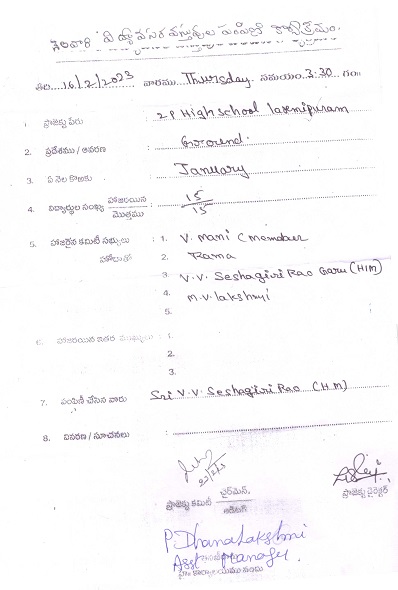 నెలవారి విద్యావసర వస్తువుల పంపిణీ కార్యక్రమం.
తేది 16/2/2023 వారము Thursday సమయం 3-30 గం॥
1. ప్రాజెక్టు పేరు : Z.P High school laxmipuram
2. ప్రదేశము / ఆవరణ : Ground
3. ఏ నెల కొఱకు : January
4. విద్యార్థుల సంఖ్య హాజరయిన / మొత్తము : 15 / 15
5. హాజరైన కమిటీ సభ్యులు : 1. V. Mani (Member
సహోదరులో 2. Rama
3. V.V. Seshagiri Rao Garu (HM)
4. M.V. lakshmi
5.
6. హాజరయిన ఇతర : 1.
2.
3.
7. పంపిణీ చేసిన వారు : Sri V.V. Seshagiri Rao (HM)
8. వివరణ / సూచనలు :
ప్రాజెక్టు కమిటీ ఛైర్మెన్, / ఆడిటర్
ప్రాజెక్టు డైరెక్టర్
P. DhanaLakshmi
Asst Manager
కార్యాలయము నుండి